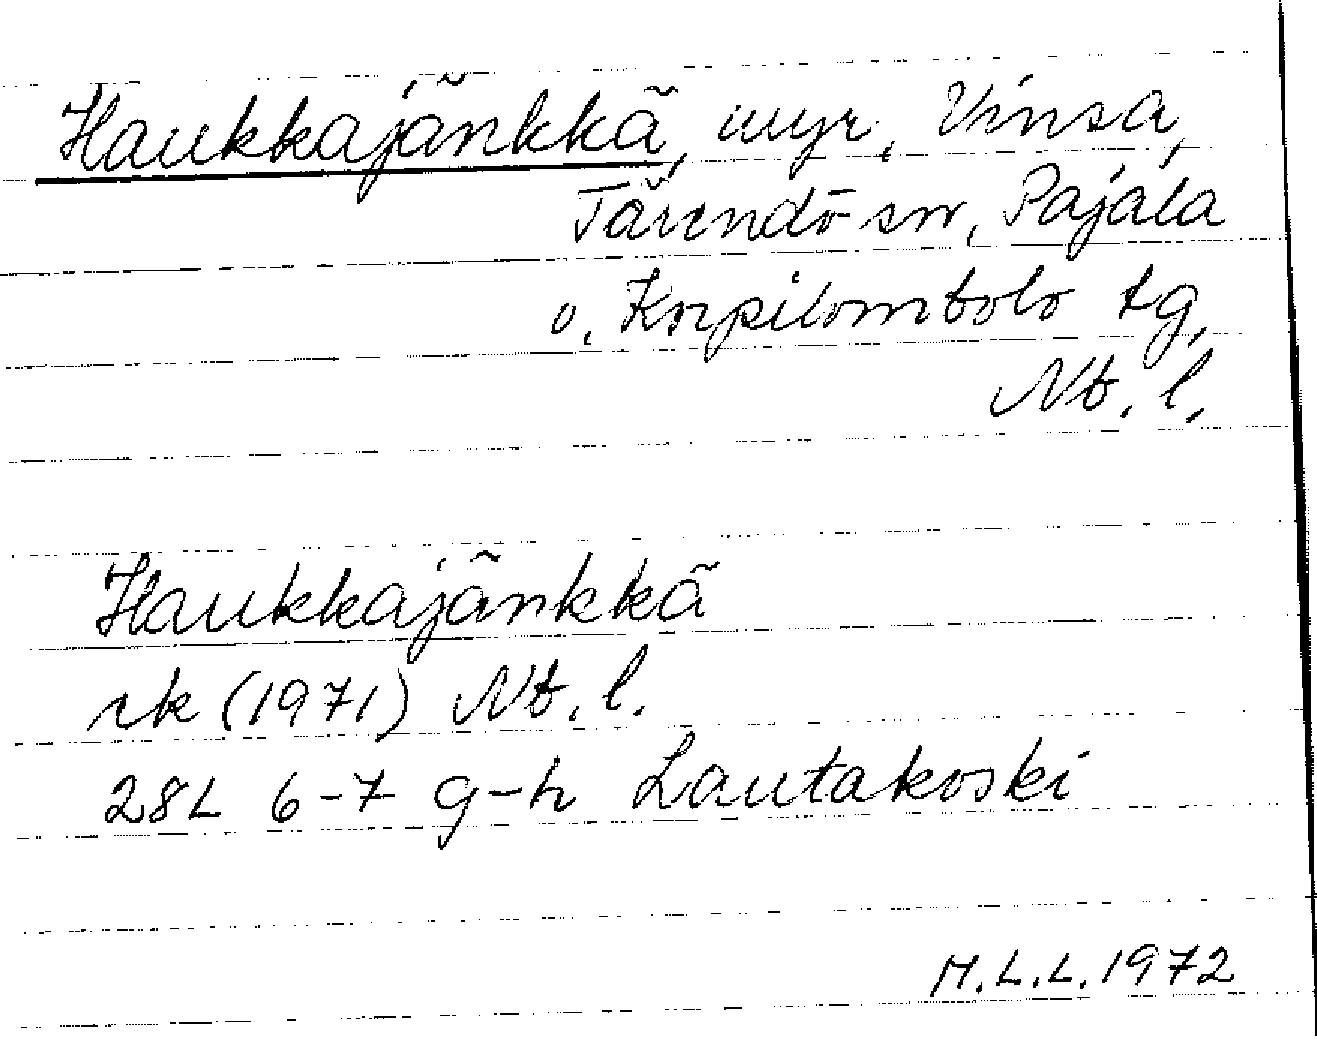 Haukkajänkkä, myr, Vinsa,
Tärendö sn, Pajala
o. Korpilombolo tg,
Nb. l.
Haukkajänkkä
rk (1971) Nb. l.
28L 6-7 g-h Lautakoski
M.L.L. 1972